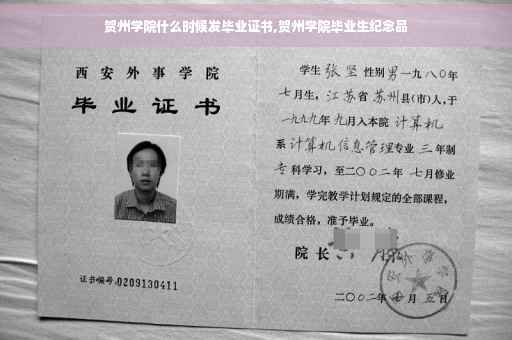 贺州学院什么时候发毕业证书,贺州学院毕业生纪念品
西安外事学院
毕业证书
证书编号:0209130411
学生 张坚 性别 男 一九八〇年
七月生,江苏省 苏州 县(市)人,于
一九九九年 九月入本院 计算机
系 计算机信息管理 专业 三 年制
专 科学习,至二〇〇二年 七月修业
期满,学完教学计划规定的全部课程,
成绩合格,准予毕业。
院长
二〇〇二年 七 月 五 日